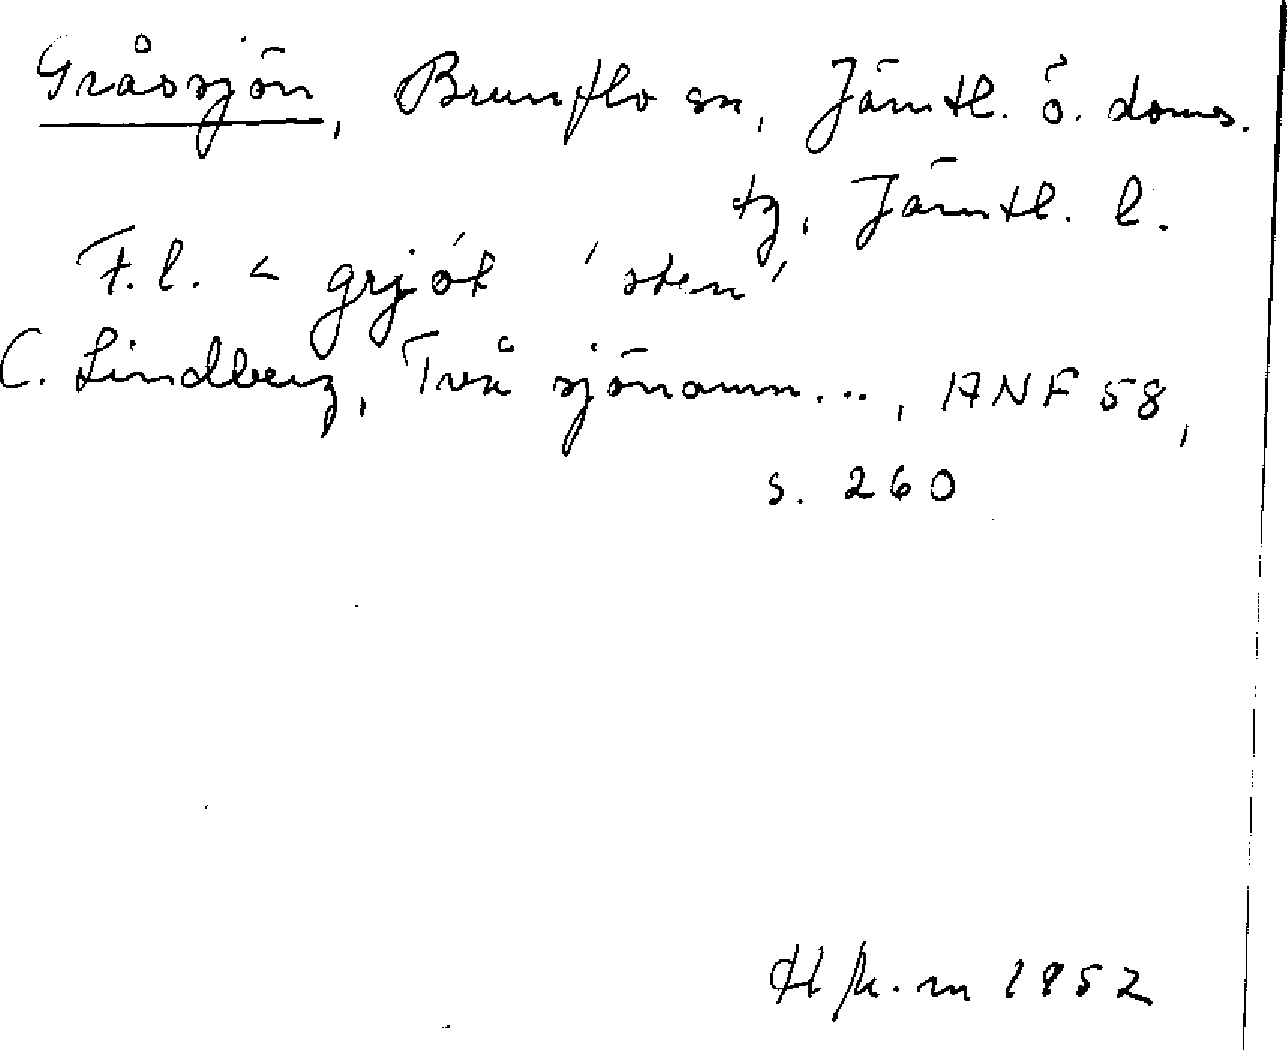 Gråssjön, Brunflo sn, Jämtl. ö. doms.
tg, Jämtl. l.
F.l. < grjót 'sten'
C. Lindberg, Två sjönamn..., ANF 58,
s. 260
1952